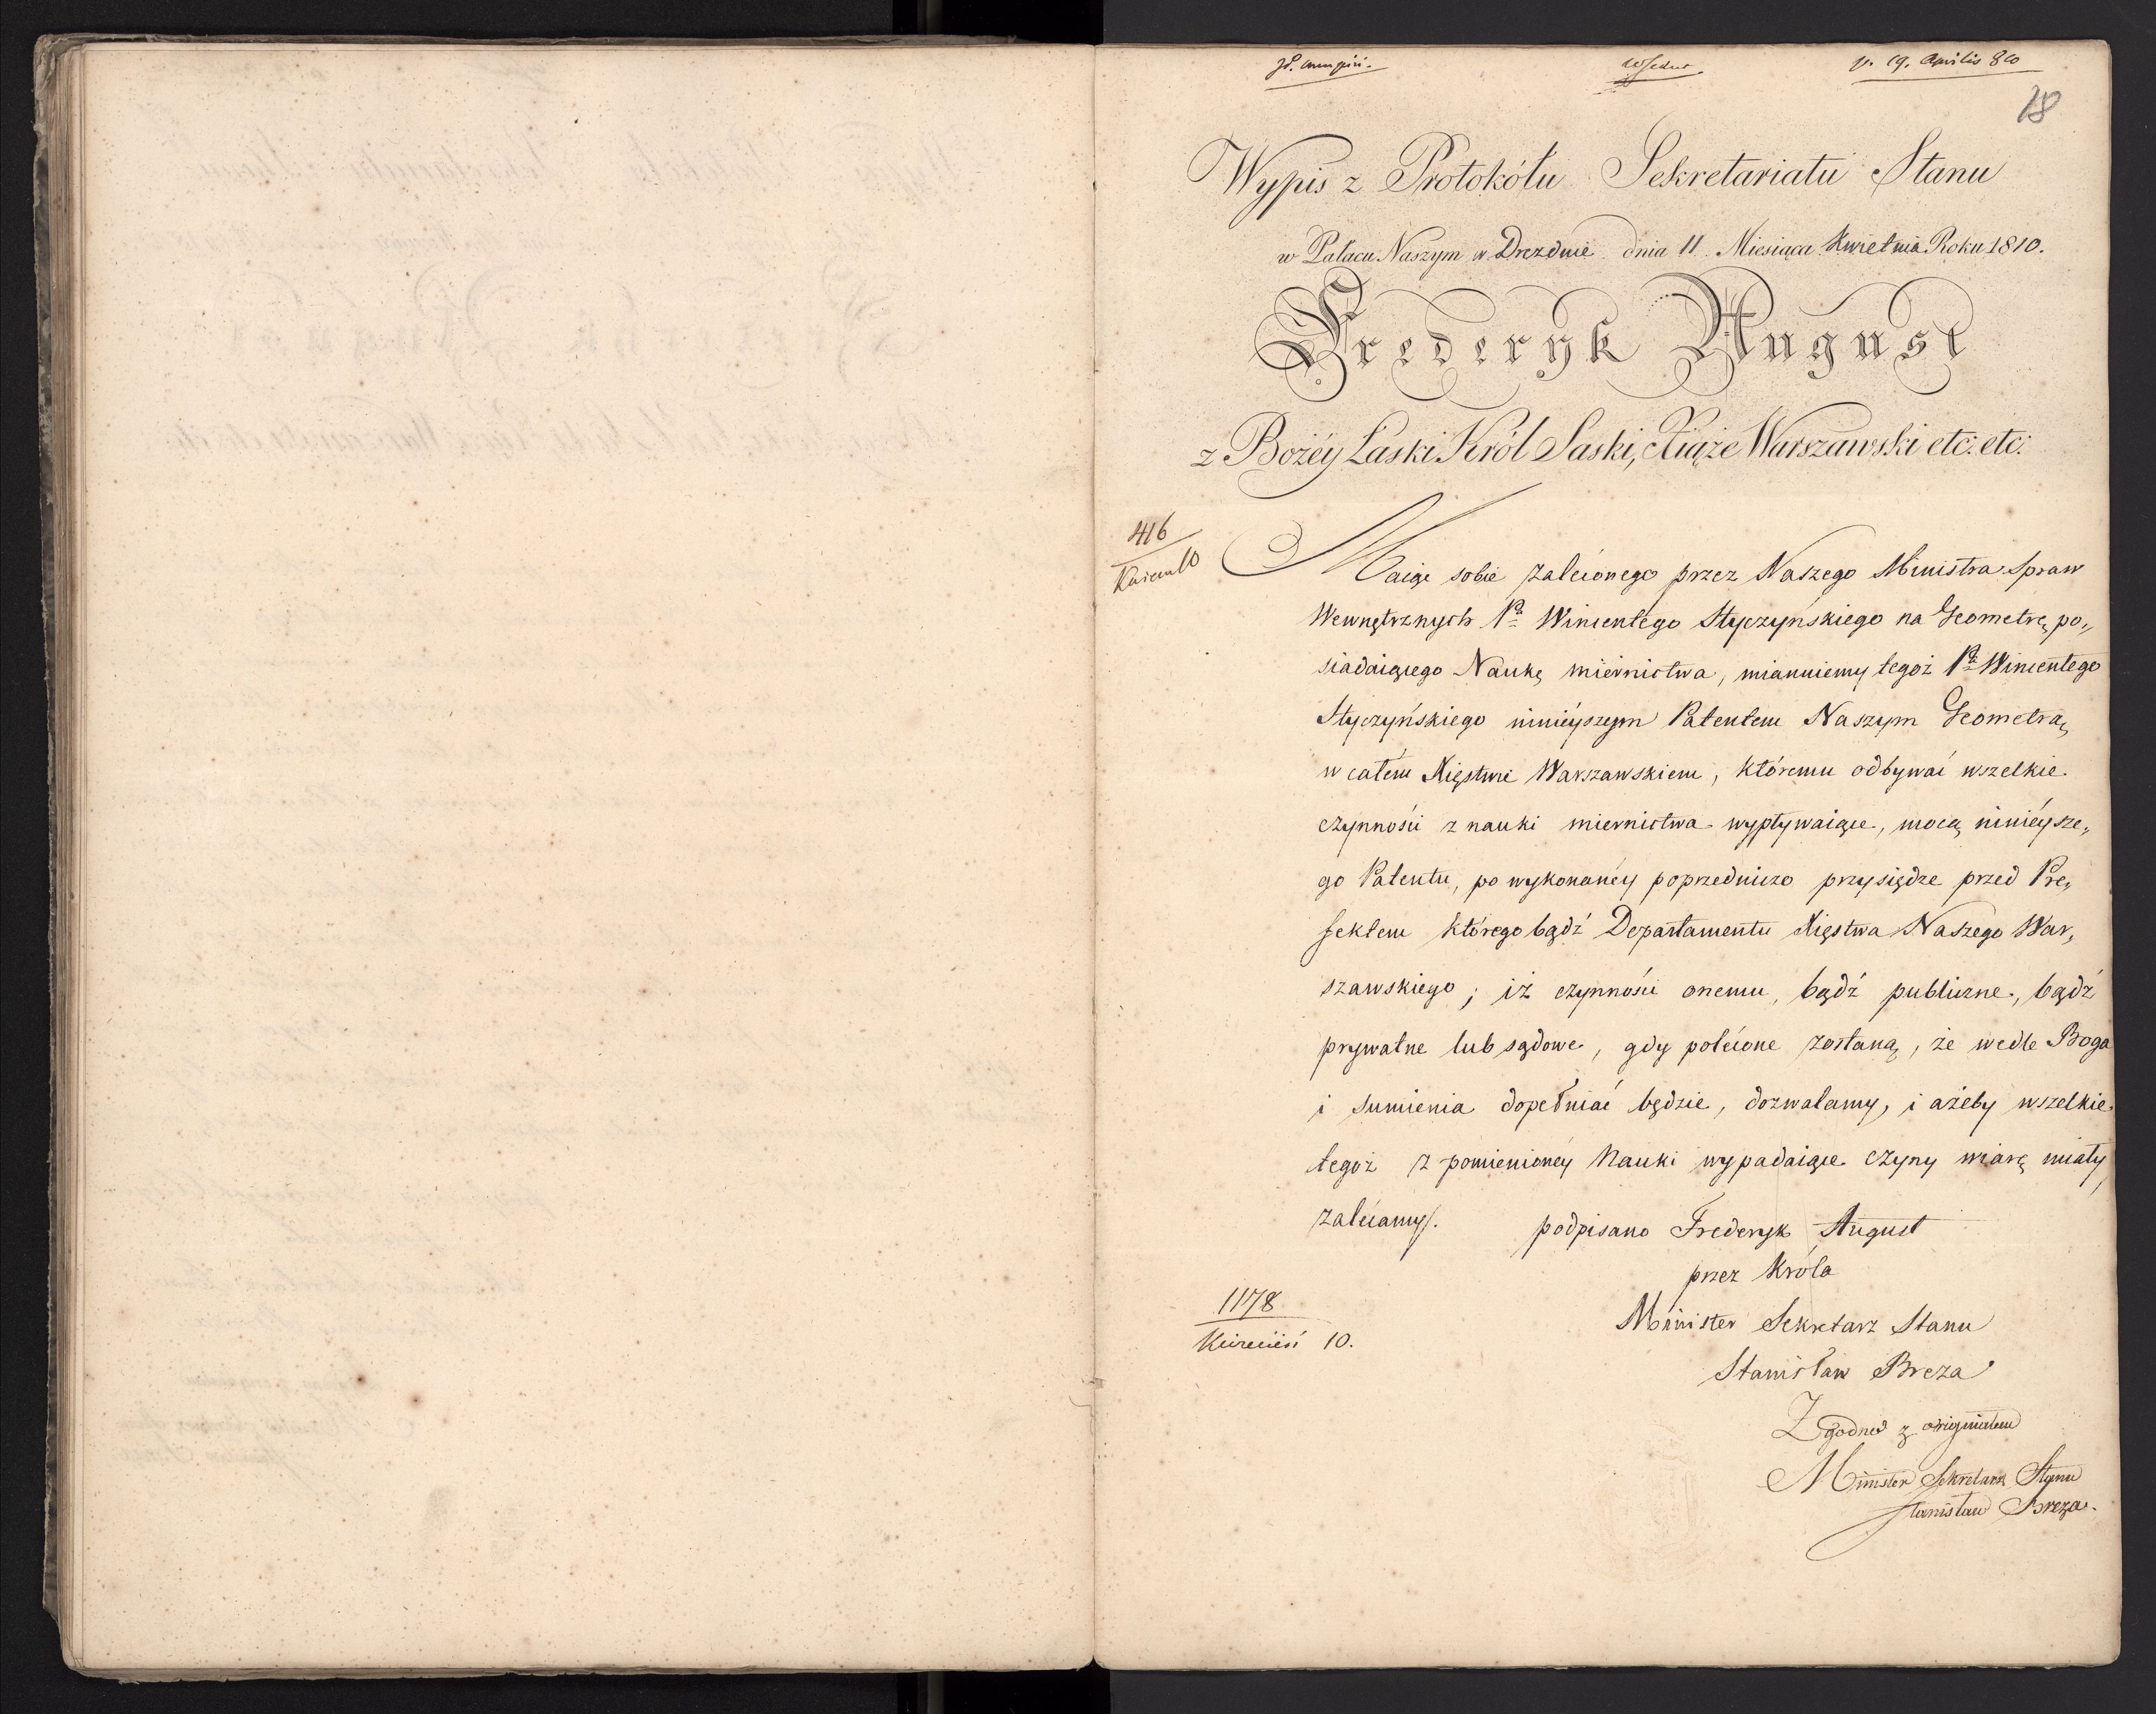 p. 19. Aprilis 810
18
Wypis z Protokółu Sekretariatu Stanu
w Pałacu Naszym w Dreznie dnia 11 Miesiąca Kwietnia Roku 1810.
Frederyk August
z Bożéy Łaski Król Saski, Xiąże Warszawski etc: etc:
416
Maiąc sobie zaleconego przez Naszego Ministra Spraw
Wewnętrznych Pa Wincentego Styczyńskiego na Geometrę, po„
siadaiącego Naukę miernictwa, mianuiemy tegoż Pa Wincentego
Styczyńskiego ninieyszym Patentem Naszym Geometrą,
w całem Xięstwie Warszawskiem, któremu odbywać wszelkie
czynności z nauki miernictwa wypływaiące, mocą niniéysze„
go Patentu, po wykonanéy poprzedniczo przysiędze przed Pre„
fektem którego bądź Departamentu Xięstwa Naszego War„
szawskiego; iż czynności onemu, bądź publiczne, bądź
prywatne lub sądowe, gdy polécone zostaną, że wedle Boga
i sumienia dopełniać będzie, dozwalamy, i ażeby wszelkie
tegoż z pomienionéy Nauki wypadaiące czyny wiarę miały,
zalécamy.
podpisano Frederyk August
przez Króla
1178
Minister Sekretarz Stanu
Kwiecień 10.
Stanisław Breza
Zgodno z originałem
Minister Sekretarz Stanu
Stanisław Breza.